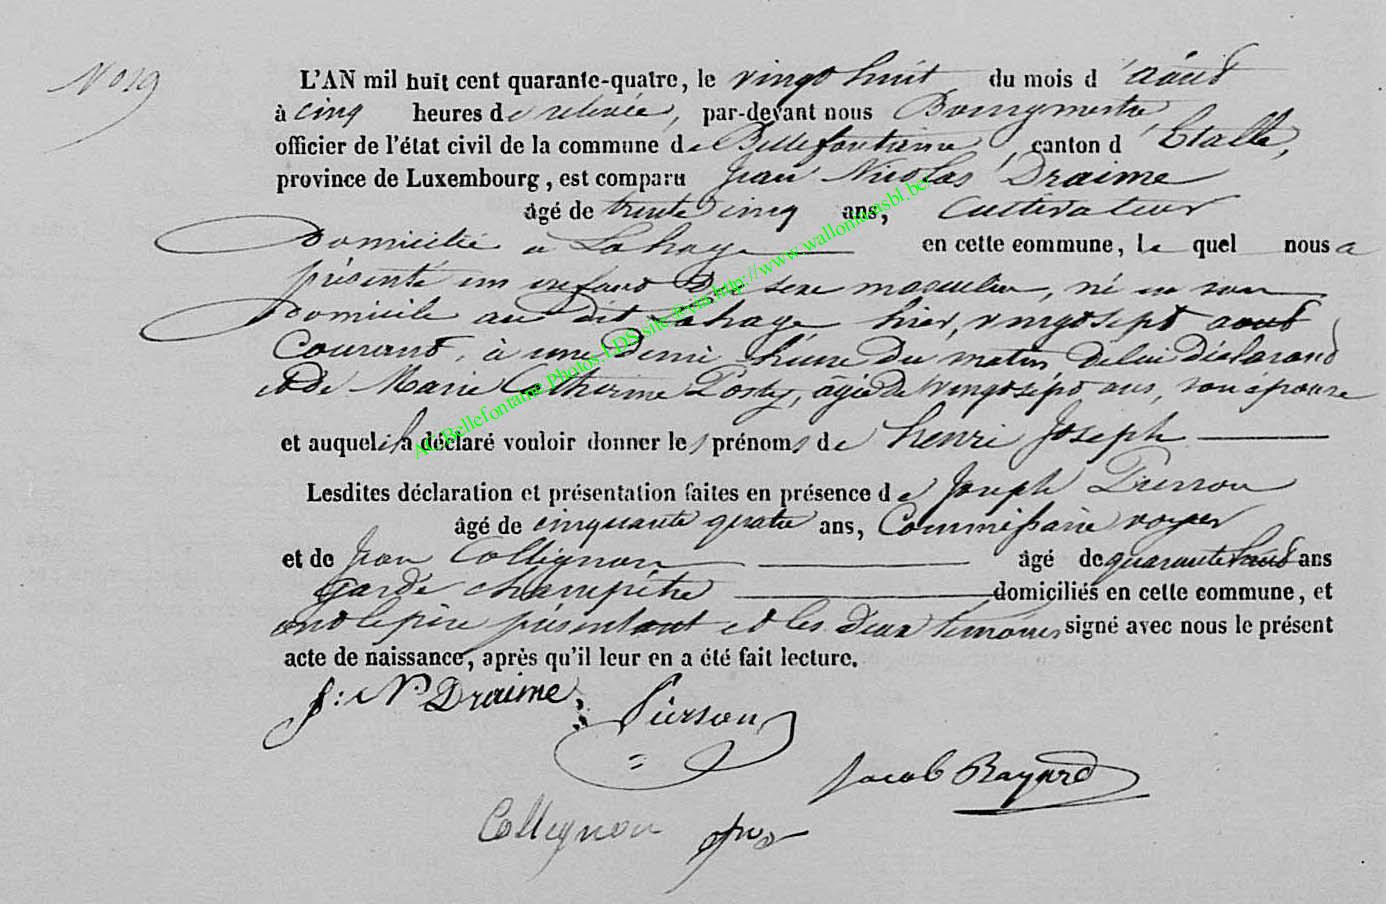 N° 19
L'AN mil huit cent quarante-quatre, le vingt huit du mois d'août
à cinq heures de relevée, par-devant nous Bourgmestre,
officier de l'état civil de la commune de Bellefontaine, canton d'Etalle,
province de Luxembourg, est comparu Jean Nicolas Draime
âgé de trente cinq ans, Cultivateur
Domicilié à Lahage en cette commune, le quel nous a
présenté un enfant du sexe masculin, né en son
Domicile au dit Lahage hier, vingt sept août
Courant, à une demi heure du matin, de lui déclarant
et de Marie Catherine, agée de vingt sept ans, son épouse
et auquel il a déclaré vouloir donner les prénoms de henri Joseph
Lesdites déclaration et présentation faites en présence de Joseph Pierson
âgé de cinquante quatre ans, Commissaire voyer
et de Jean Collignon âgé de quarante ans
Garde champêtre domiciliés en cette commune, et
ont le père présentant et les deux témoins signé avec nous le présent
acte de naissance, après qu'il leur en a été fait lecture.
J: N Draime
Pierson
Jacob Bayard
Collignon
AC Bellefontaine Photos LDS site Evia http://www.walloniaasbl.be/